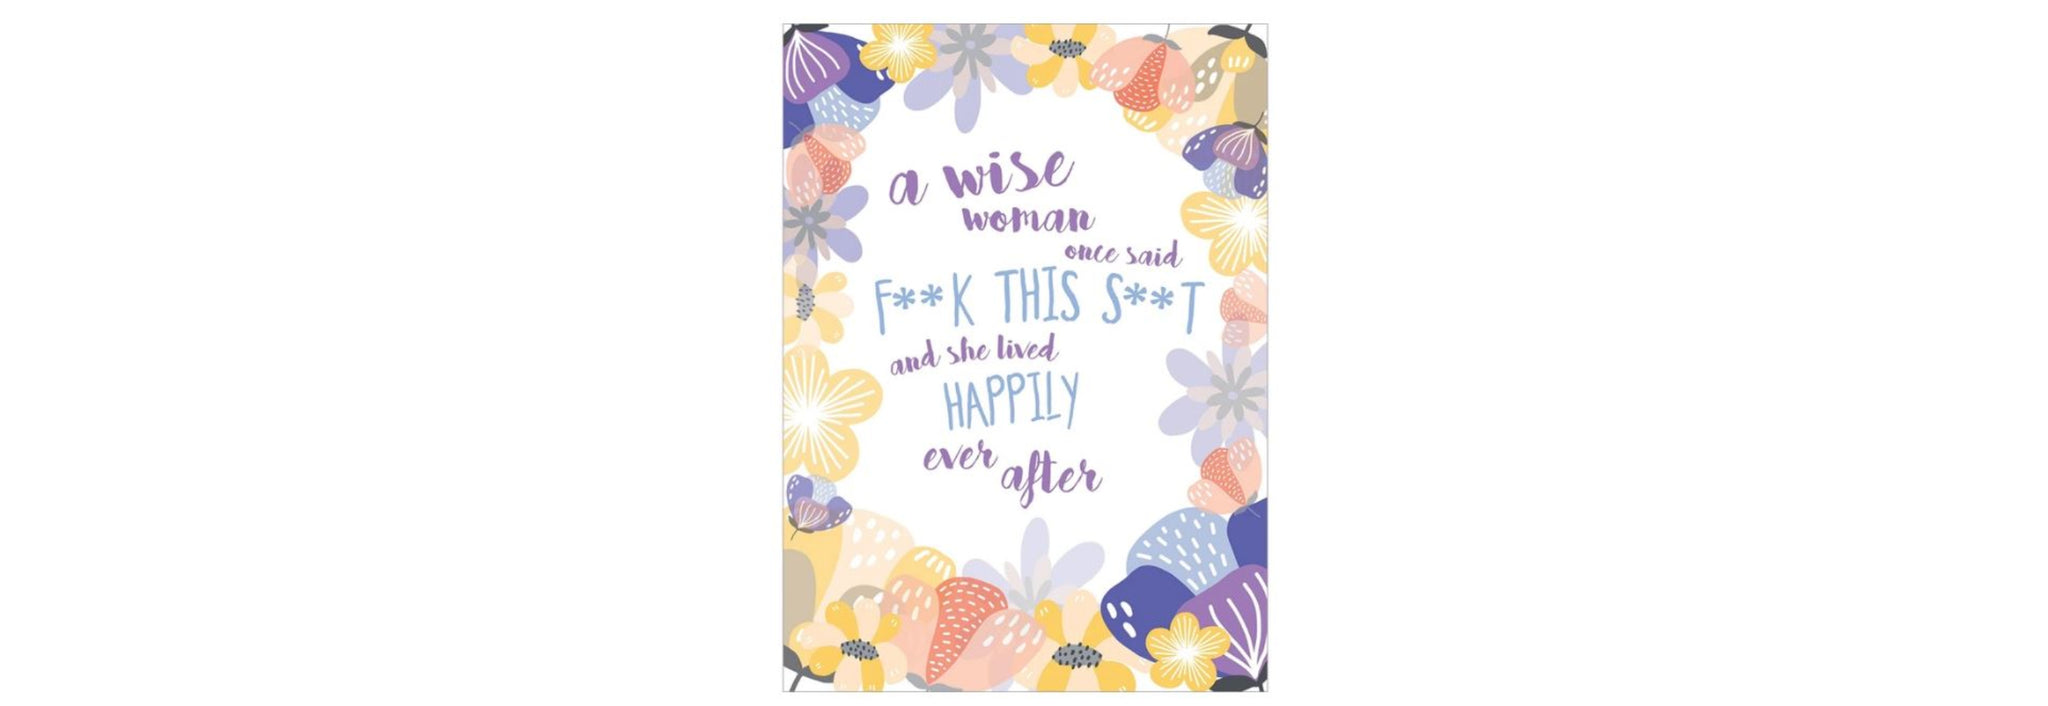 a wise
woman
once said
F**K THIS S**T
and she lived
HAPPILY
ever after